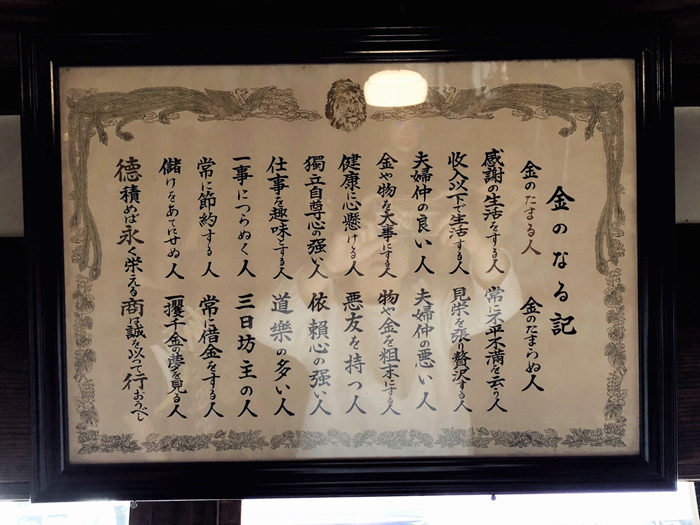 金のなる記
金のたまる人 金のたまらぬ人
感謝の生活をする人 常に不平不満を云う人
収入以下で生活する人 見栄を張り贅沢する人
夫婦仲の良い人 夫婦仲の悪い人
金や物を大事にする人 物や金を粗末にする人
健康に心懸ける人 悪友を持つ人
獨立自尊心の強い人 依頼心の強い人
仕事を趣味とする人 道樂の多い人
一事につらぬく人 三日坊主の人
常に節約する人 常に借金をする人
儲けをあてにせぬ人 一攫千金の夢を見る人
德積めば永く栄える商は誠を以って行おうべし